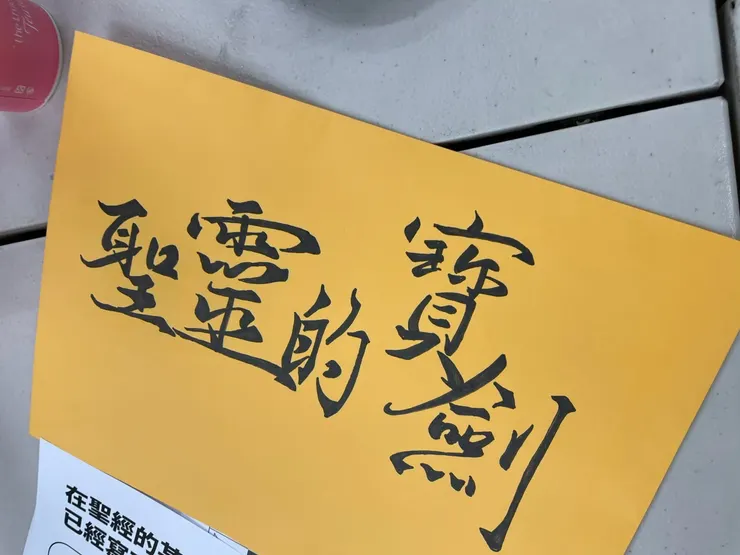 聖靈的寶劍
在聖經的
已經寫